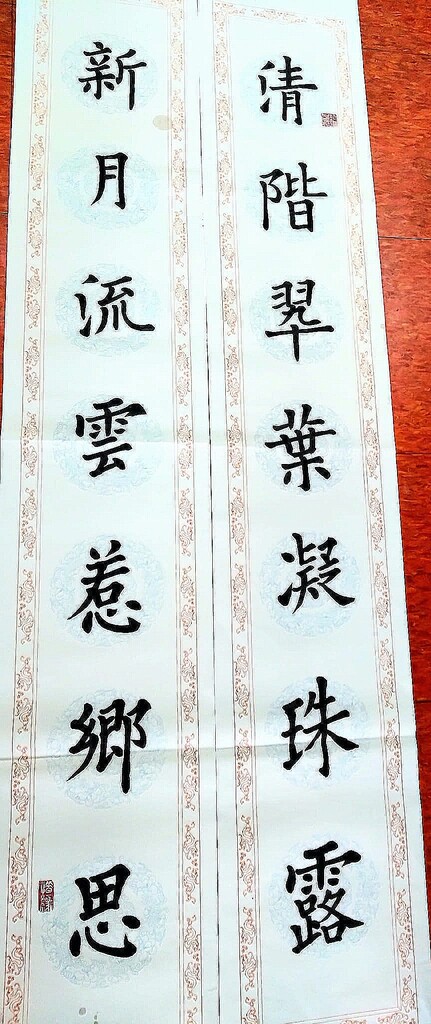 清階翠葉凝珠露
新月流雲惹鄉思